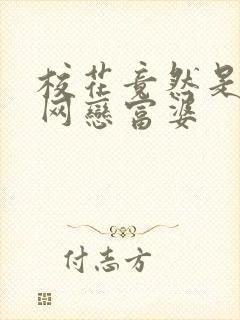 校花竟然是
网戀富婆
付志方